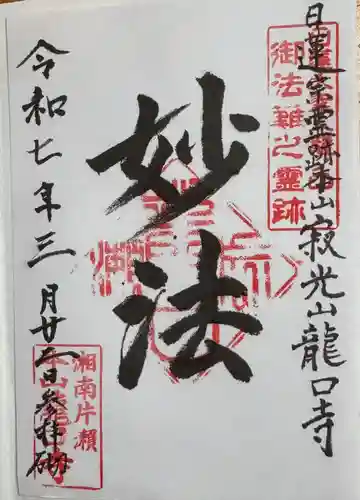 日蓮宗霊跡本山寂光山龍口寺
御法難之霊跡
妙法
令和七年三月廿二日参拝
湘南片瀬
本山龍口寺